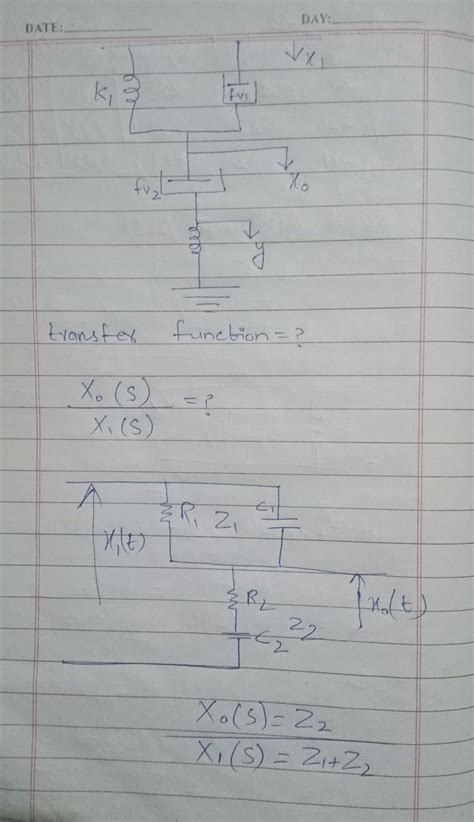 DATE:
DAY:
x₁
K₁
fv₁
x₀
fv₂
y
transfer function = ?
X₀(S)
X₁(S)
= ?
R₁ Z₁ C₁
x₁(t)
R₂
x₀(t)
C₂ Z₂
X₀(S) = Z₂
X₁(S) = Z₁+Z₂